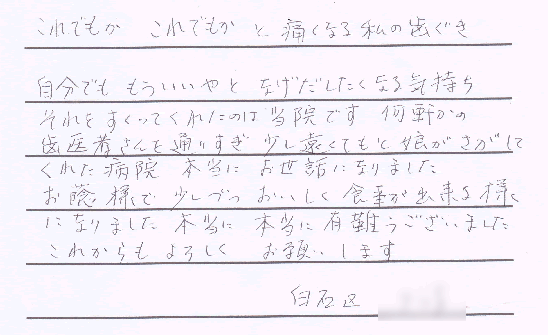 これでもか これでもか と 痛くなる 私の歯ぐき
自分でも もういいやと なげだしたくなる気持ち
それをすくってくれたのは 当院です 何軒かの
歯医者さんを通りすぎ 少し遠くてもと 娘がさがして
くれた病院 本当にお世話になりました
お陰様で 少しづつ おいしく 食事が出来る様
になりました 本当に 本当に有難うございました
これからも よろしく お願いします
白石区